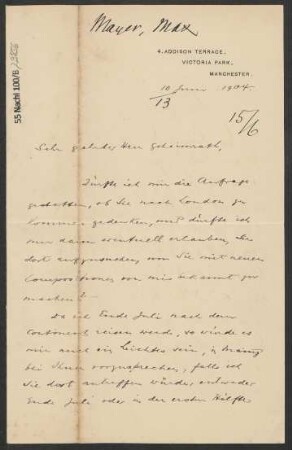 Mayer, Max
4, ADDISON TERRACE,
VICTORIA PARK,
MANCHESTER.
55 Nachl 100/B
10 Juni 1904
13
15/6
Sehr geehrter Herr Geheimrath,
Dürfte ich mir die Anfrage
gestatten, ob Sie nach London zu
kommen gedenken, und dürfte ich
mir dann eventuell erlauben, Sie
dort aufzusuchen, um Sie mit neuen
Compositionen von mir bekannt zu
machen?
Da ich Ende Juli nach dem
Continent reisen werde, so würde es
mir auch ein Leichtes sein,
bei Ihnen vorzusprechen, falls ich
Sie dort antreffen würde, entweder
Ende Juli oder in der ersten Hälfte